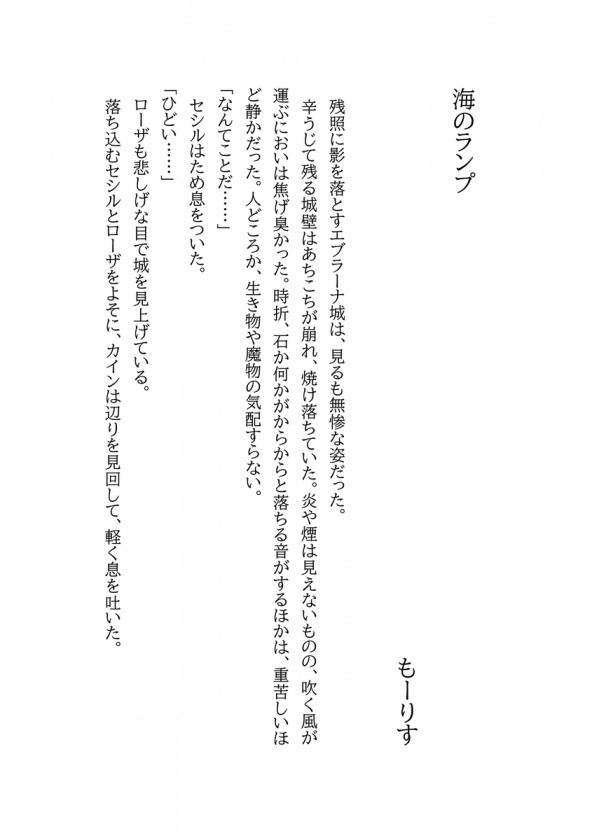 海のランプ
もーりす
残照に影を落とすエブラーナ城は、見るも無惨な姿だった。
辛うじて残る城壁はあちこちが崩れ、焼け落ちていた。炎や煙は見えないものの、吹く風が
運ぶにおいは焦げ臭かった。時折、石か何かがからからと落ちる音がするほかは、重苦しいほ
ど静かだった。人どころか、生き物や魔物の気配すらない。
「なんてことだ……」
セシルはため息をついた。
「ひどい……」
ローザも悲しげな目で城を見上げている。
落ち込むセシルとローザをよそに、カインは辺りを見回して、軽く息を吐いた。